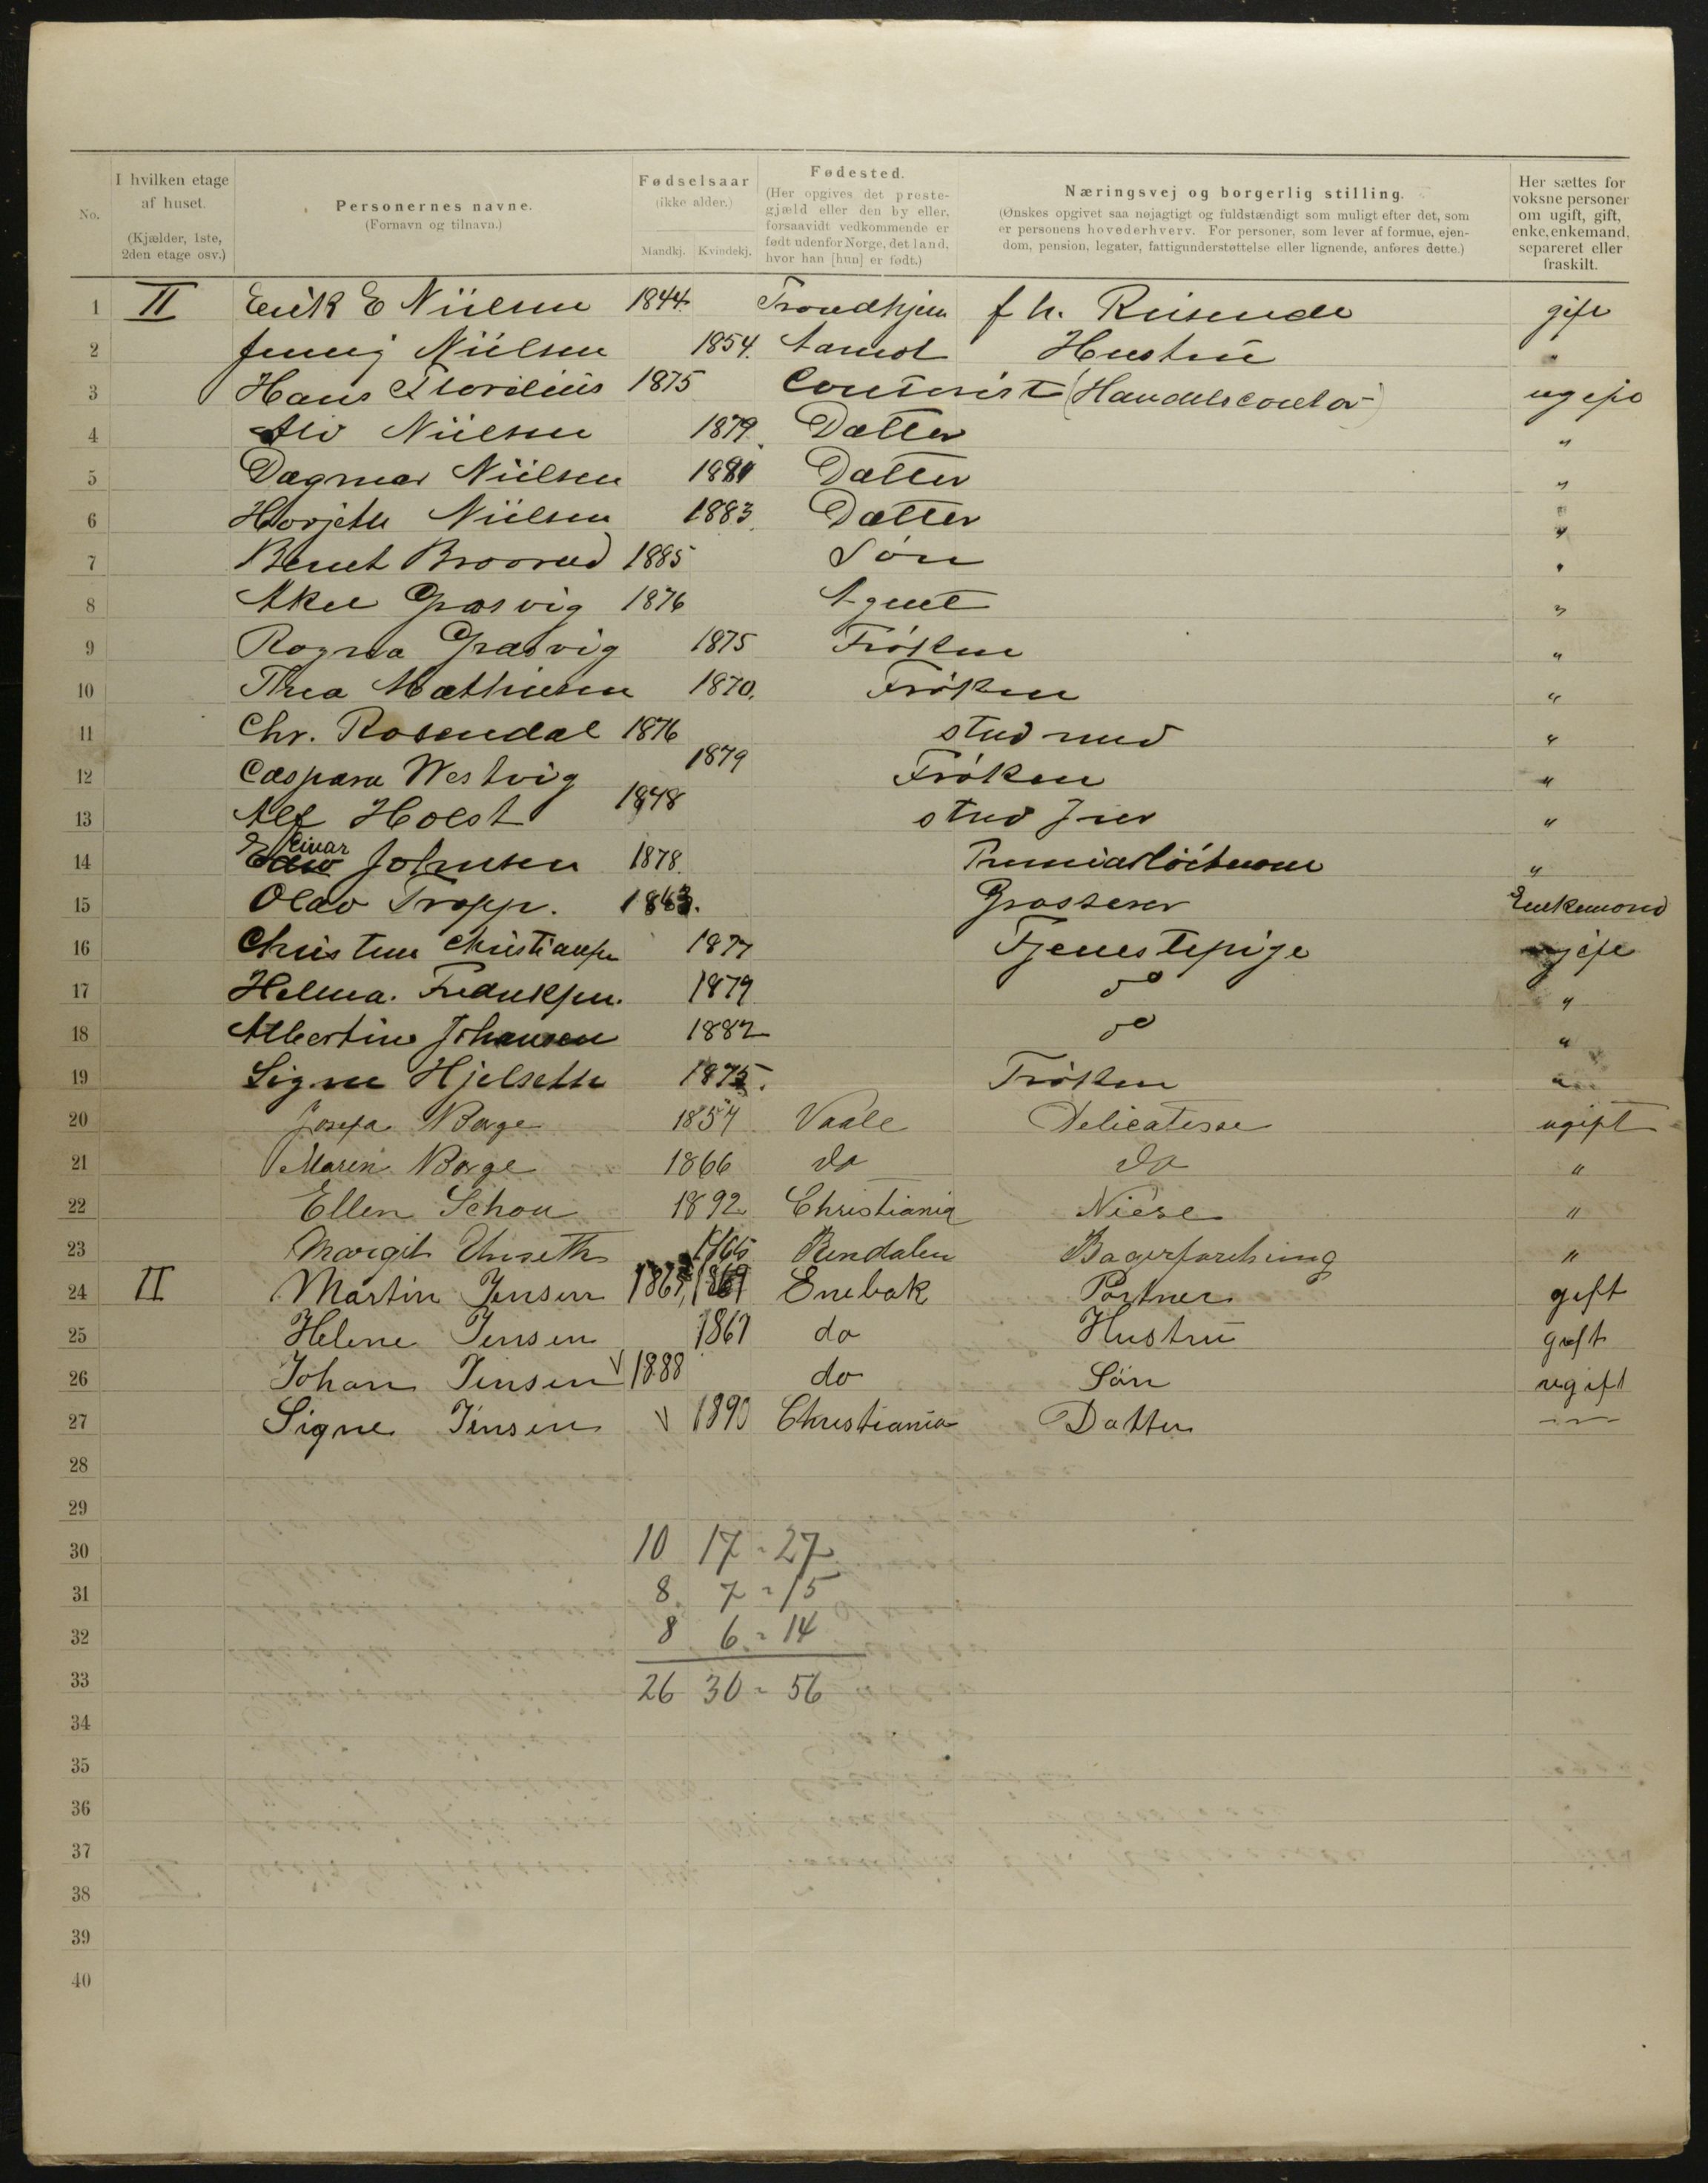 No. I hvilken etage af huset. (Kjælder, 1ste, 2den etage osv.) Personernes navne. (Fornavn og tilnavn.) Fødselsaar (ikke alder.) Mandkj. Kvindekj. Fødested. (Her opgives det preste-gjæld eller den by eller, forsaavidt vedkommende er født udenfor Norge, det land, hvor han [hun] er født.) Næringsvej og borgerlig stilling. (Ønskes opgivet saa nøjagtigt og fuldstændigt som muligt efter det, som er personens hovederhverv. For personer, som lever af formue, ejendom, pension, legater, fattigunderstøttelse eller lignende, anføres dette.) Her sættes for voksne personer om ugift, gift, enke, enkemand, separeret eller fraskilt.
1 II Erik E Niilsen 1844 Trondhjem f h. Reisende gift
2 Jenny Niilsen 1854. Aamot Hustru "
3 Hans Florelius 1875 Contorist (Handelscontor) ugift
4 Niilsen 1879 Datter "
5 Dagmar Niilsen 1881 Datter "
6 Niilsen 1883 Datter "
7 Bernt 1885 Søn "
8 Græsvig 1876 Agent "
9 Ragna Græsvig 1875 Frøken "
10 Thea Mathiesen 1870. Frøken "
11 Chr. Rosendal 1876 stud med "
12 Caspara Westvig 1879 Frøken "
13 Alf Holst 1848 stud Jur "
14 Einar Johnsen 1878. Premierløitnant "
15 Olav Tropp. 1863. Grosserer Enkemand
16 Christine Christiansen 1877 Tjenestepige ugift
17 Helma. Fredriksen. 1879 do "
18 Albertine Johansen 1882 do "
19 Signe Hjelseth 1875. Frøken "
20 Josefa Borge 1857 Vaale Delicatesse ugift
21 Maren Borge 1866 do do "
22 Ellen Schou 1892 Christiania Niese "
23 Margit Unseth 1865 Rendalen Bagerforretning "
24 II Martin Jensen 1863, 1861 Enebak Portner gift
25 Helene Jensen 1861 do Hustru gift
26 Johan Jensen v 1888 do Søn ugift
27 Signe Jensen v 1890 Christiania Datter -"-
28
29
30 10 17 = 27
31 8 7 = 15
32 8 6 = 14
33 26 30 = 56
34
35
36
37
38
39
40